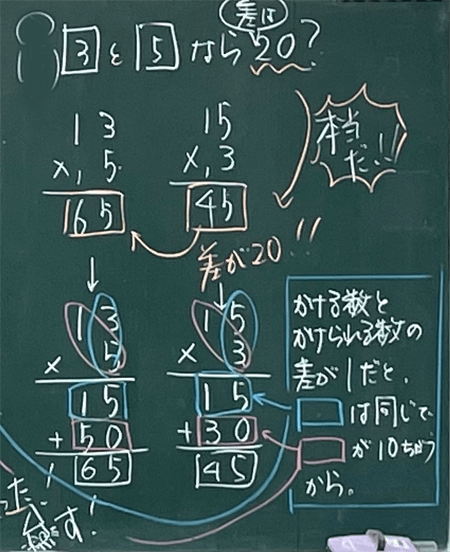 差は
3と5なら20?
13
×5
65
15
×3
45
本当
だ!!
差が20!!
13
× 5
15
+50
65
15
× 3
15
+30
45
かける数と
かけられる数の
差が1だと、
□は同じで
□が10ちがう
から。
です!